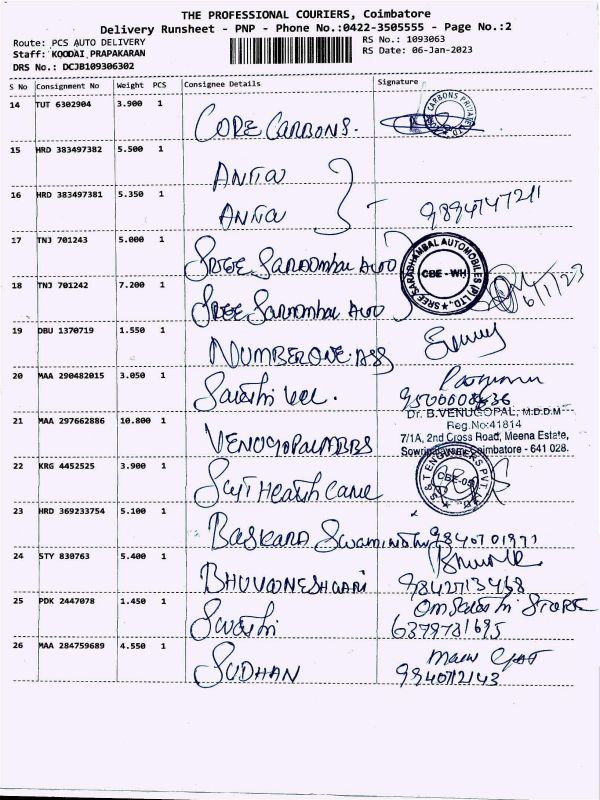 THE PROFESSIONAL COURIERS, Coimbatore
Delivery Runsheet - PNP - Phone No.:0422-3505555 - Page No.:2
Route: PCS AUTO DELIVERY
RS No.: 1093063
Staff: KOODAI PRAPAKARAN
RS Date: 06-Jan-2023
DRS No.: DCJB109306302
S No Consignment No Weight PCS Consignee Details Signature
14 TUT 6302904 3.900 1 CORE CARBONS.
15 HRD 383497382 5.500 1 ANITA
16 HRD 383497381 5.350 1 ANITA
17 TNJ 701243 5.000 1 SREE Saradambal Auto
SREE SARADHAMBAL AUTOMOBILES (P) LTD.,
CBE - WH
18 TNJ 701242 7.200 1 SREE Saradambal Auto 6/1/23
19 DBU 1370719 1.550 1 NUMBERONE
20 MAA 290482015 3.050 1
9500008636
21 MAA 297662886 10.800 1 VENUGOPAL MBBS
Dr. B.VENUGOPAL, M.D.D.M
Reg.No:41814
7/1A, 2nd Cross Road, Meena Estate,
Coimbatore - 641 028.
22 KRG 4452525 3.900 1 Health Care
S & T ENGINEERS PVT. LTD
23 HRD 369233754 5.100 1 BASKARA Swaminathan
24 STY 839763 5.400 1 BHUVANESHWARI 9842713468
25 PDK 2447078 1.450 1 Swathi 6379731695
STORE
26 MAA 284759689 4.550 1 SUDHAN